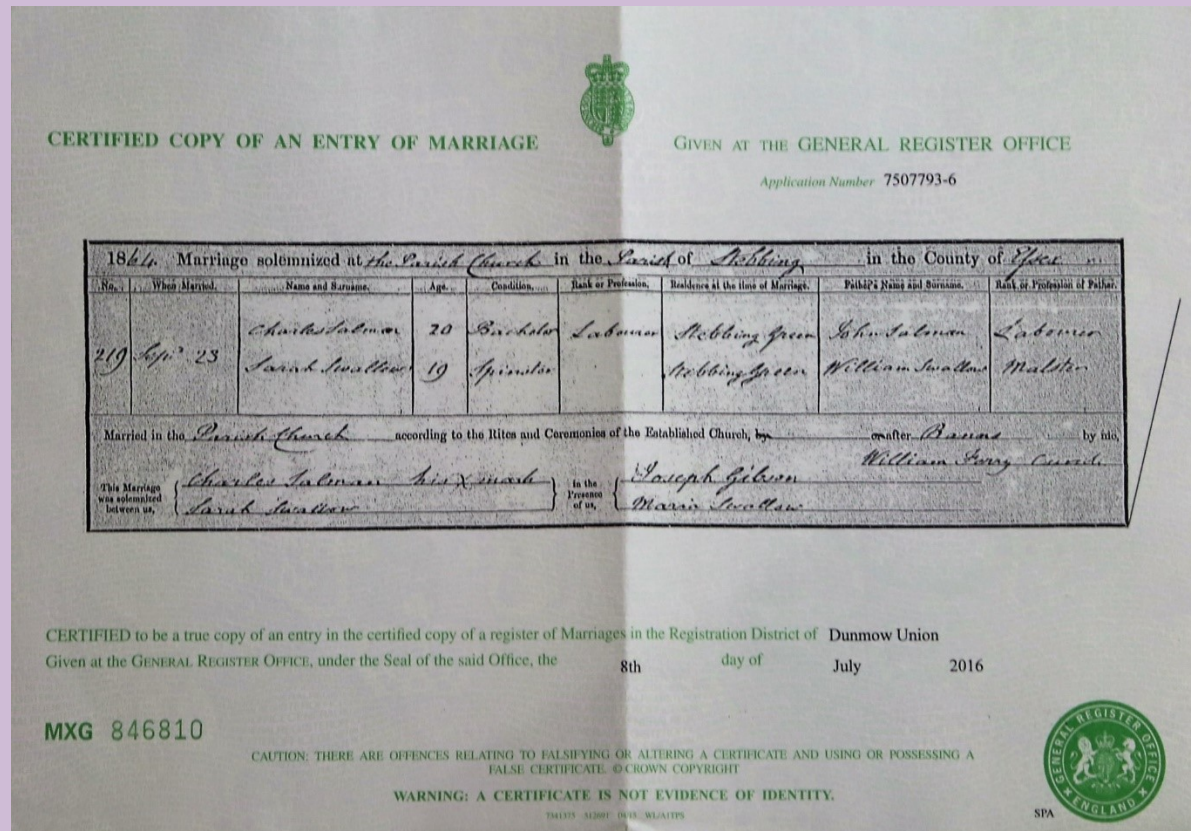 CERTIFIED COPY OF AN ENTRY OF MARRIAGE
GIVEN AT THE GENERAL REGISTER OFFICE
Application Number 7507793-6
1864. Marriage solemnized at the Parish Church in the Parish of Stebbing in the County of Essex
No. When Married. Name and Surname. Age. Condition. Rank or Profession. Residence at the time of Marriage. Father's Name and Surname. Rank or Profession of Father.
Charles Salman 20 Bachelor Labourer Stebbing Green John Salman Labourer
219 Sepr 23
Sarah Swallow 19 Spinster Stebbing Green William Swallow Malster
Married in the Parish Church according to the Rites and Ceremonies of the Established Church, by or after Banns by me,
William Curate
This Marriage was solemnized between us, Charles Salman his X mark
Sarah Swallow
in the Presence of us, Joseph Gibson
Maria Swallow
CERTIFIED to be a true copy of an entry in the certified copy of a register of Marriages in the Registration District of Dunmow Union
Given at the GENERAL REGISTER OFFICE, under the Seal of the said Office, the 8th day of July 2016
MXG 846810
CAUTION: THERE ARE OFFENCES RELATING TO FALSIFYING OR ALTERING A CERTIFICATE AND USING OR POSSESSING A
FALSE CERTIFICATE. © CROWN COPYRIGHT
WARNING: A CERTIFICATE IS NOT EVIDENCE OF IDENTITY.
GENERAL REGISTER OFFICE
ENGLAND
SPA